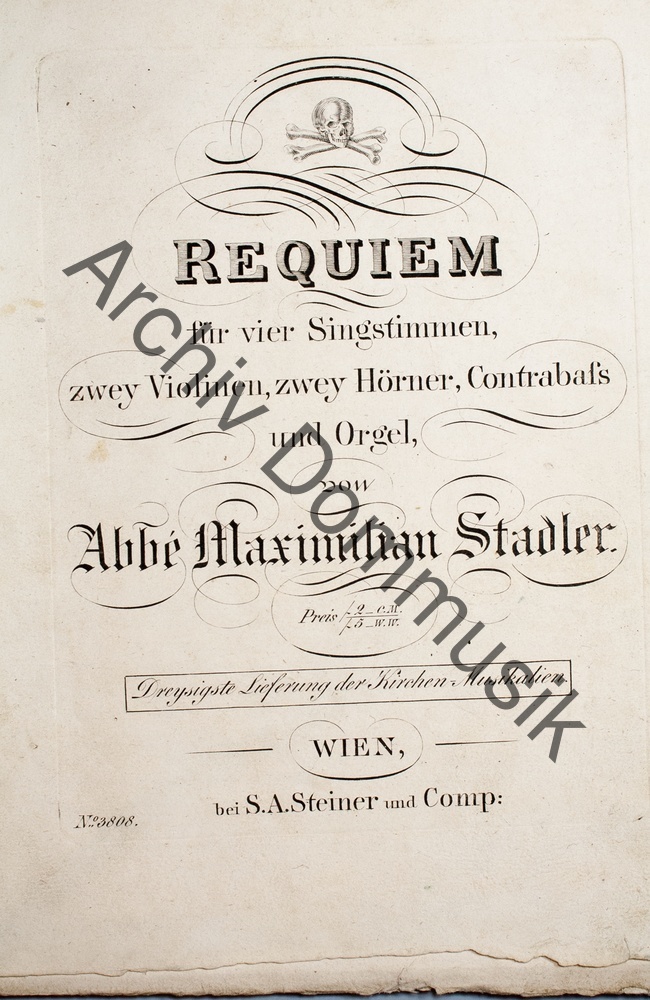 REQUIEM
für vier Singstimmen,
zwey Violinen, zwey Hörner, Contrabaſs
und Orgel,
von
Abbé Maximilian Stadler.
Preis f. 2 _ C.M.
f. 5 _ W.W.
Dreysigste Lieferung der Kirchen-Musikalien.
WIEN,
bei S.A. Steiner und Comp:
No 3808.
Archiv Dommusik